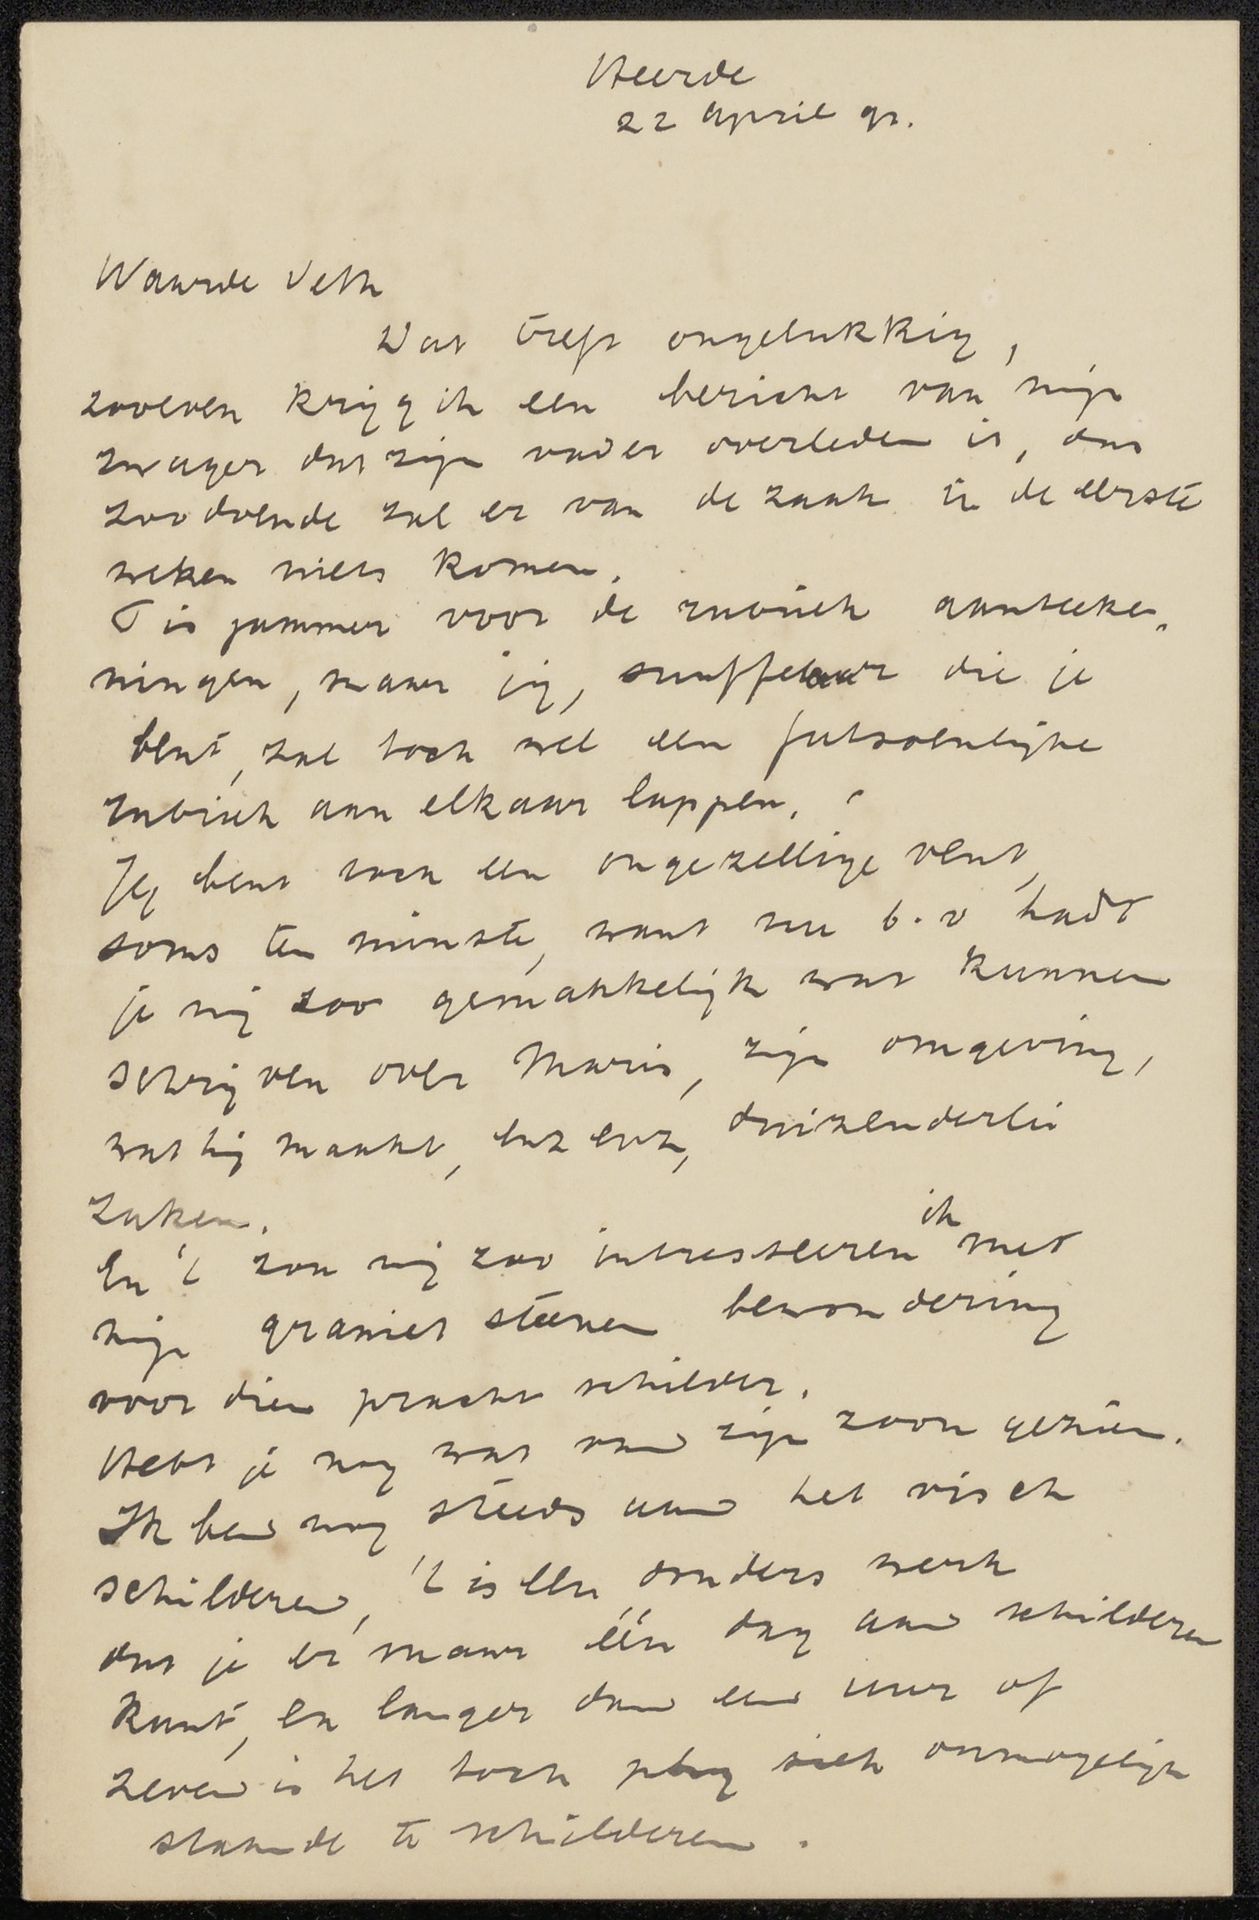 Heerde
22 April 90.
Waarde Veth
Dat treft ongelukkig,
zooeven krijg ik een bericht van mijn
zwager dat zijn vader overleden is, dus
zoodoende zal er van de zaak in de eerste
weken niets komen.
T is jammer voor de rubriek aanteeke„
ningen, maar jij, snuffelaar die je
bent, zal toch wel een fatsoenlijke
rubriek aan elkaar lappen.
Jij bent toch een ongezellige vent,
soms ten minste, want nu b.v hadt
je mij zoo gemakkelijk wat kunnen
schrijven over Maris, zijn omgeving,
wat hij maakt, enz enz, duizenderlei
zaken.
En 't zou mij zoo intresseeren ik met
mijn graniet steenen bewondering
voor dien pracht schilder.
Hebt je nog wat van zijn zoon gezien.
Ik ben nog steeds aan het visch
schilderen, 't is een donders werk
dat je er maar één dag aan schilderen
kunt, en langer dan een uur of
zeven is het toch phy siek onmogelijk
staande te schilderen.